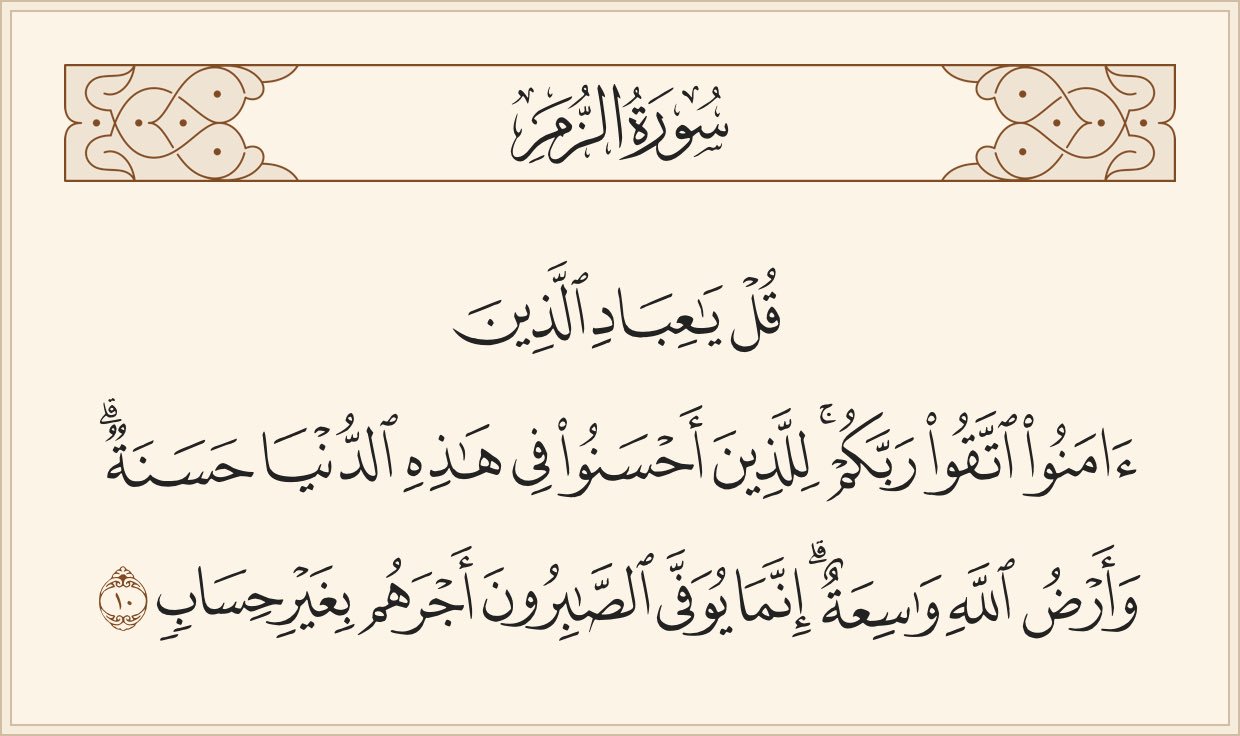 سُورَةُ الزُّمَرِ
قُلۡ يَـٰعِبَادِ ٱلَّذِينَ
ءَامَنُواْ ٱتَّقُواْ رَبَّكُمۡۚ لِلَّذِينَ أَحۡسَنُواْ فِي هَـٰذِهِ ٱلدُّنۡيَا حَسَنَةٞۗ
وَأَرۡضُ ٱللَّهِ وَٰسِعَةٌۗ إِنَّمَا يُوَفَّى ٱلصَّـٰبِرُونَ أَجۡرَهُم بِغَيۡرِ حِسَابٖ ١٠